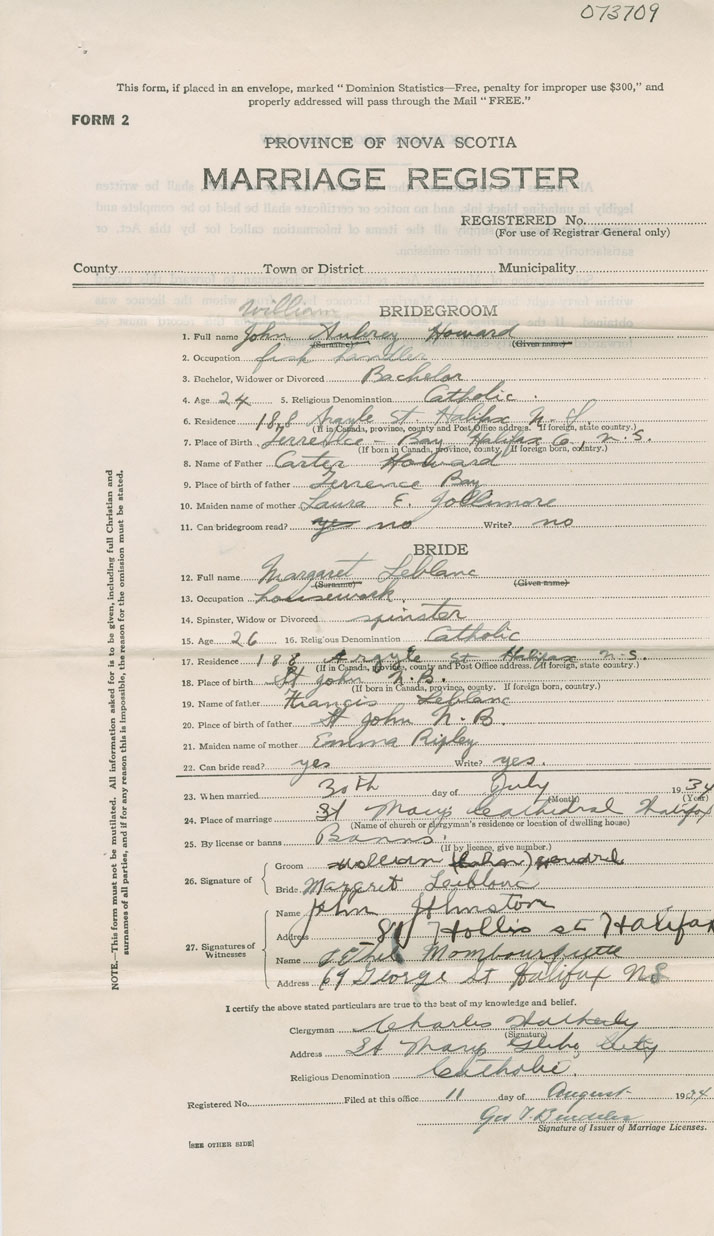 073709
This form, if placed in an envelope, marked "Dominion Statistics—Free, penalty for improper use $300," and
properly addressed will pass through the Mail "FREE."
FORM 2
PROVINCE OF NOVA SCOTIA
MARRIAGE REGISTER
REGISTERED No.
(For use of Registrar General only)
County Town or District Municipality
William
BRIDEGROOM
1. Full name John Aubrey Howard
(Surname) (Given name)
2. Occupation fish handler
3. Bachelor, Widower or Divorced Bachelor
4. Age 24 5. Religious Denomination Catholic.
6. Residence 188 Argyle St. Halifax N. S.
(If in Canada, province, county and Post Office address. If foreign, state country.)
7. Place of Birth Terrence - Bay Halifax Co., N.S.
(If born in Canada, province, county. If foreign born, country.)
8. Name of Father Carter Howard
9. Place of birth of father Terrence Bay
10. Maiden name of mother Laura E. Jollimore
11. Can bridegroom read? yes no Write? no
BRIDE
12. Full name Margaret Leblanc
(Surname) (Given name)
13. Occupation housework.
14. Spinster, Widow or Divorced spinster
15. Age 26 16. Religious Denomination Catholic
17. Residence 188 Argyle St Halifax N.S.
(If in Canada, province, county and Post Office address. If foreign, state country.)
18. Place of birth St John N.B.
(If born in Canada, province, county. If foreign born, country.)
19. Name of father Francis Leblanc
20. Place of birth of father St John N.B.
21. Maiden name of mother Emma Ripley
22. Can bride read? yes Write? yes.
23. When married 30th day of July 1934
(Month) (Year)
24. Place of marriage St Mary's Cathedral Halifax
(Name of church or clergyman's residence or location of dwelling house)
25. By license or banns Banns.
(If by licence, give number.)
26. Signature of
Groom William (John) Howard
Bride Margaret Leblanc
27. Signatures of Witnesses
Name John Johnston
Address Hollis st Halifax
Name Ethel Mombourquette
Address 69 George St Halifax NS
I certify the above stated particulars are true to the best of my knowledge and belief.
Clergyman Charles
(Signature)
Address St Marys Glebe City
Religious Denomination Catholic.
Registered No. Filed at this office 11 day of August 1934
Geo
Signature of Issuer of Marriage Licenses.
[SEE OTHER SIDE]
NOTE.—This form must not be mutilated. All information asked for is to be given, including full Christian and
surnames of all parties, and if for any reason this is impossible, the reason for the omission must be stated.